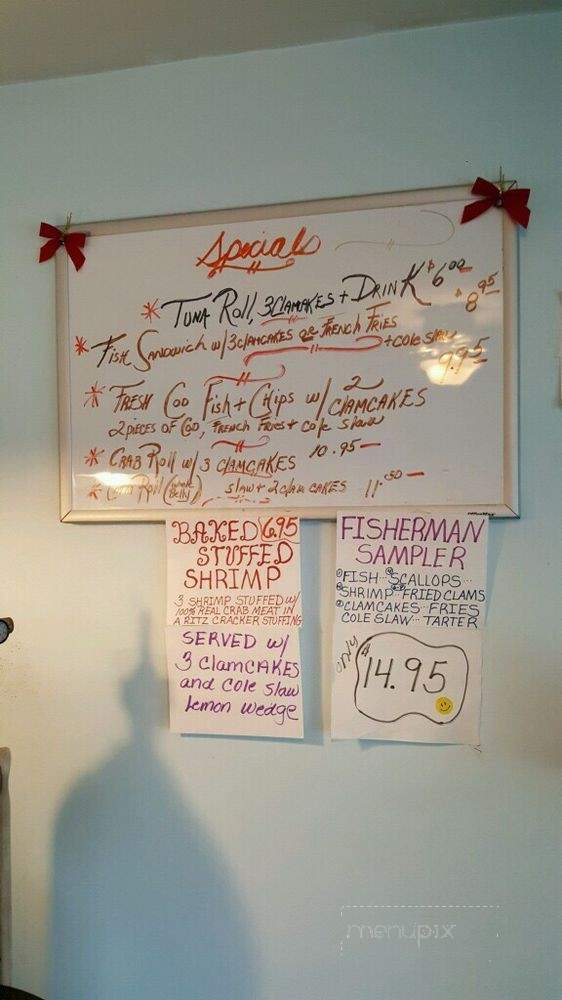 Specials
* TUNA ROLL, 3 CLAMCAKES + DRINK $6.00
* FISH SANDWICH W/ 3 CLAMCAKES OR FRENCH FRIES $8.95
+ COLE SLAW
* FRESH COD FISH + CHIPS W/ 2 CLAMCAKES 9.95
2 PIECES OF COD, FRENCH FRIES + COLE SLAW
* CRAB ROLL W/ 3 CLAMCAKES 10.95
* ROLL SLAW + 2 CLAM CAKES 11.50
BAKED 6.95
STUFFED
SHRIMP
3 SHRIMP STUFFED W/
100% REAL CRAB MEAT IN
A RITZ CRACKER STUFFING
SERVED W/
3 CLAMCAKES
and cole slaw
Lemon wedge
FISHERMAN
SAMPLER
FISH... SCALLOPS...
SHRIMP FRIED CLAMS
CLAMCAKES.. FRIES
COLE SLAW... TARTER
ONLY
$14.95
menupix